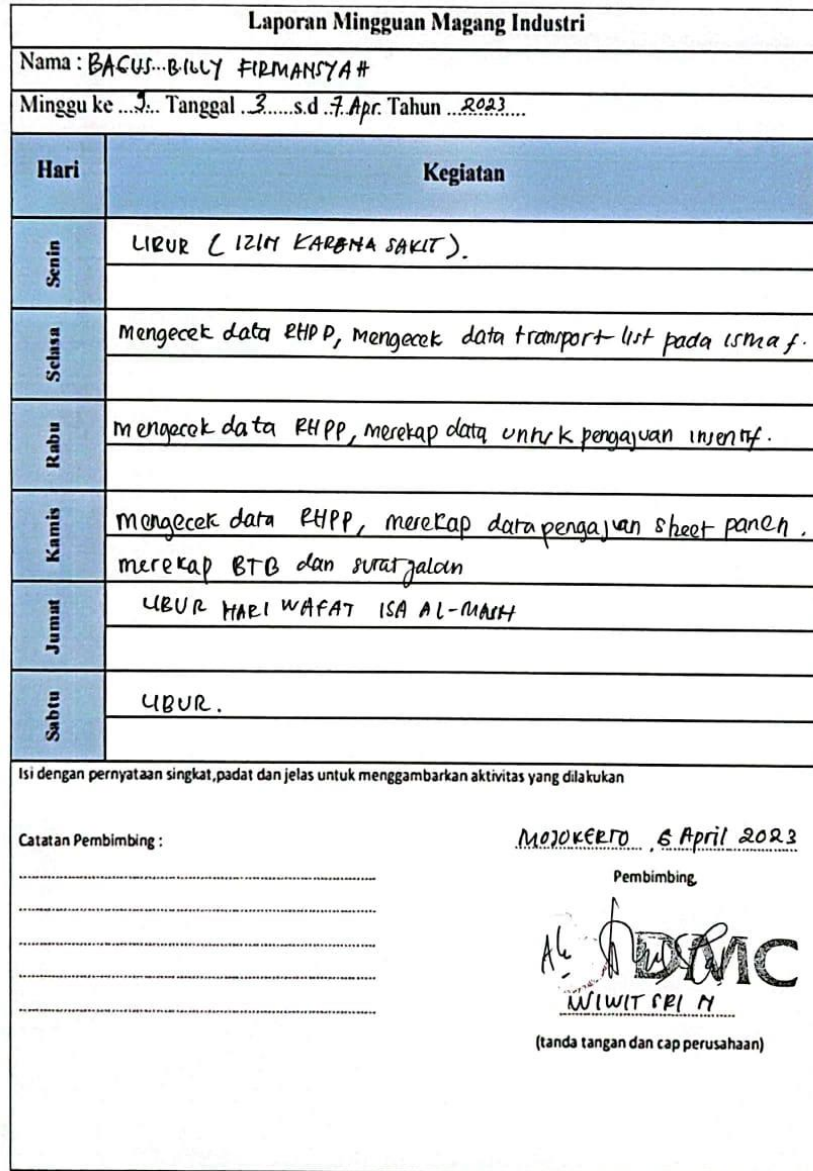 Laporan Mingguan Magang Industri
Nama : BAGUS BILLY FIRMANSYAH
Minggu ke 9 Tanggal 3 s.d 7 Apr. Tahun 2023
Hari Kegiatan
Senin LIBUR ( IZIN KARENA SAKIT ).
Selasa Mengecek data RHPP, Mengecek data transport list pada ismaf.
Rabu mengecek data RHPP, merekap data untuk pengajuan insentif.
Kamis mengecek data RHPP, merekap data pengajuan sheet panen.
merekap BTB dan surat jalan
Jumat LIBUR HARI WAFAT ISA AL-MASIH
Sabtu LIBUR.
Isi dengan pernyataan singkat,padat dan jelas untuk menggambarkan aktivitas yang dilakukan
Catatan Pembimbing :
MOJOKERTO, 6 April 2023
Pembimbing,
DMC
WIWIT SRI N
(tanda tangan dan cap perusahaan)